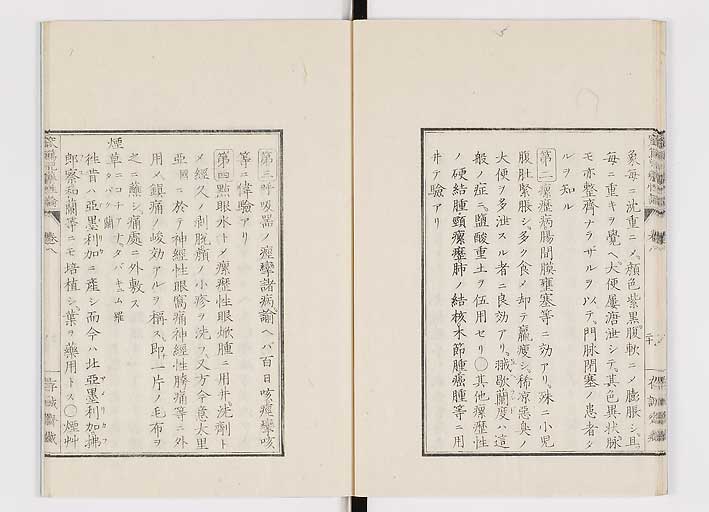 象毎ニ沈重ニメ顔色紫黒腹軟ニノ膨脹シ且
毎ニ重キヲ覺ヘ大便屢溏泄シテ其色異状脉
モ亦整齊ナラザルヲ以テ門脉閉塞ノ患者タ
ルヲ知ル
第二瘰癧病腸間膜壅塞等ニ効アリ殊ニ小児
腹肚緊脹シ多ク食メ却テ羸瘦シ稀涼惡臭ノ
大便ヲ多泄スル者ニ良効アリ蘭度ハ這
般ノ症ニ鹽酸重土ヲ伍用セリ〇其他瘰癧性
ノ硬結腫頸瘰癧肺ノ結核水節腫癌腫等ニ用
井テ驗アリ
第三呼吸器ノ痙攣諸病諭ヘバ百日咳痙攣咳
等ニ偉驗アリ
第四點眼水トメ瘰癧性眼焮腫ニ用井洗劑ト
メ經久ノ剥脱顔ノ小疹ヲ洗フ又方今意大里
亞國ニ於テ神經性眼窩痛神經性臍痛等ニ外
用メ鎮痛ノ峻効アルヲ稱ス即一片ノ毛布ヲ
之ニ蘸シ痛處ニ外敷ス
煙草ニコチアナタバキュム羅
タバク蘭
徃昔ハ亞墨利加ニ産シ而今ハ北亞墨利加拂
郎察和蘭等ニモ培植シ葉ヲ藥用トス〇煙艸